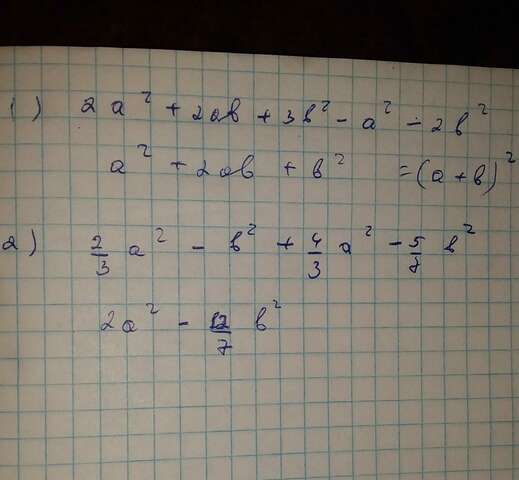 1) 2a² + 2ab + 3b² - a² - 2b²
a² + 2ab + b² = (a + b)²
2) 2/3 a² - b² + 4/3 a² - 5/7 b²
2a² - 12/7 b²